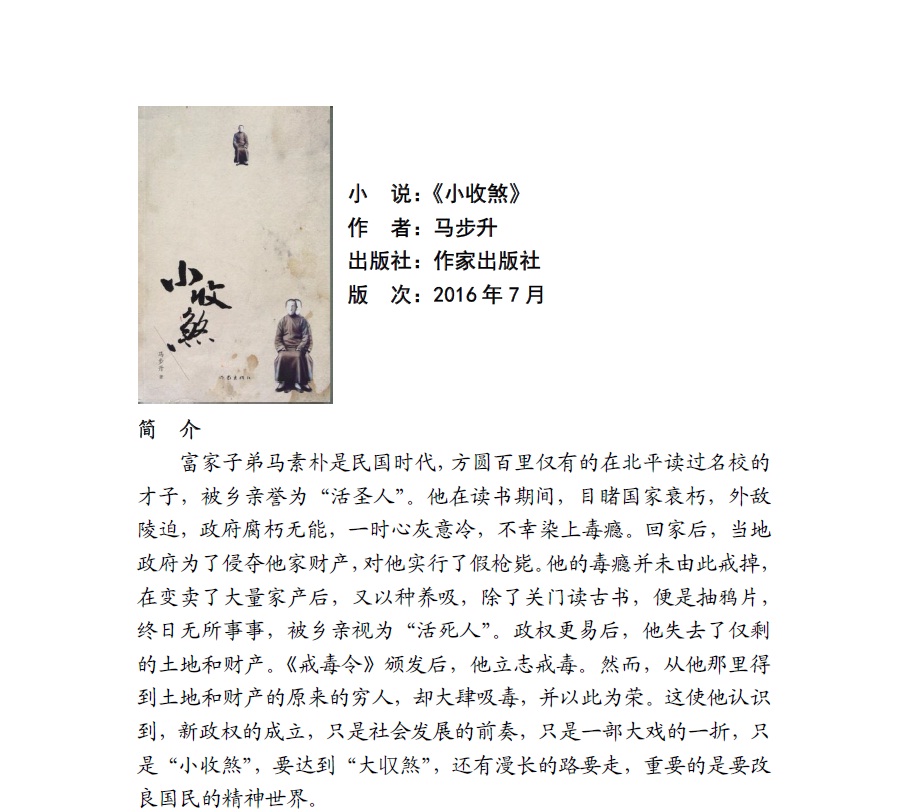 小
收
煞
马步升 著
作家出版社
小 说：《小收煞》
作 者：马步升
出版社：作家出版社
版 次：2016 年 7 月
简 介
富家子弟马素朴是民国时代，方圆百里仅有的在北平读过名校的
才子，被乡亲誉为“活圣人”。他在读书期间，目睹国家衰朽，外敌
陵迫，政府腐朽无能，一时心灰意冷，不幸染上毒瘾。回家后，当地
政府为了侵夺他家财产，对他实行了假枪毙。他的毒瘾并未由此戒掉，
在变卖了大量家产后，又以种养吸，除了关门读古书，便是抽鸦片，
终日无所事事，被乡亲视为“活死人”。政权更易后，他失去了仅剩
的土地和财产。《戒毒令》颁发后，他立志戒毒。然而，从他那里得
到土地和财产的原来的穷人，却大肆吸毒，并以此为荣。这使他认识
到，新政权的成立，只是社会发展的前奏，只是一部大戏的一折，只
是“小收煞”，要达到“大収煞”，还有漫长的路要走，重要的是要改
良国民的精神世界。